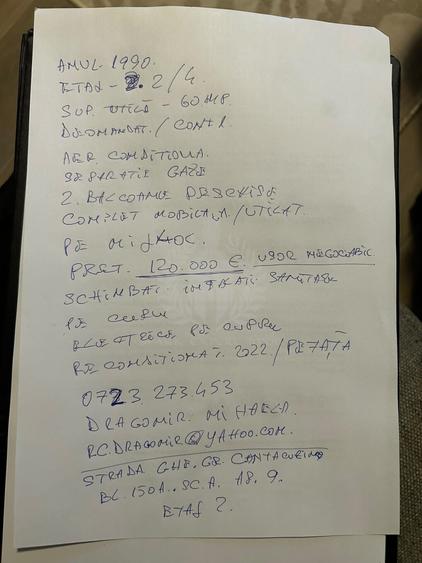 ANUL 1990.
ETAJ - 2. 2/4.
SUP. UTILĂ - 60 MP.
DECOMANDAT. / CONF 1.
AER CONDITIONA.
SEPARATIE GAZE
2. BALCOANE DESCHISE
COMPLET MOBILAT / UTILAT.
PE MIJLOC.
PRET. 120.000 €. USOR NEGOCIABIL
SCHIMBAT. INSTALATII SANITARE
PE CUPRU
ELECTRICE PE CUPRU
RECONDITIONAT. 2022. / PE FAȚĂ
0723.273.453
DRAGOMIR. MIHAELA.
RC.DRAGOMIR@YAHOO.COM.
STRADA GHE. GR. CANTACUZINO
BL. 150A.. SC. A. AP. 9.
ETAJ 2.